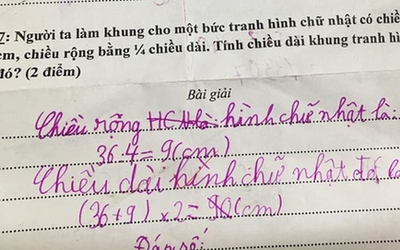 7: Người ta làm khung cho một bức tranh hình chữ nhật có chiề
cm, chiều rộng bằng ¼ chiều dài. Tính chiều dài khung tranh hì
đó? (2 điểm)
Bài giải
Chiều rộng HCN là: hình chữ nhật là:
36:4=9(cm)
Chiều dài hình chữ nhật đó là
(36+9)×2=90(cm)
Đáp số: